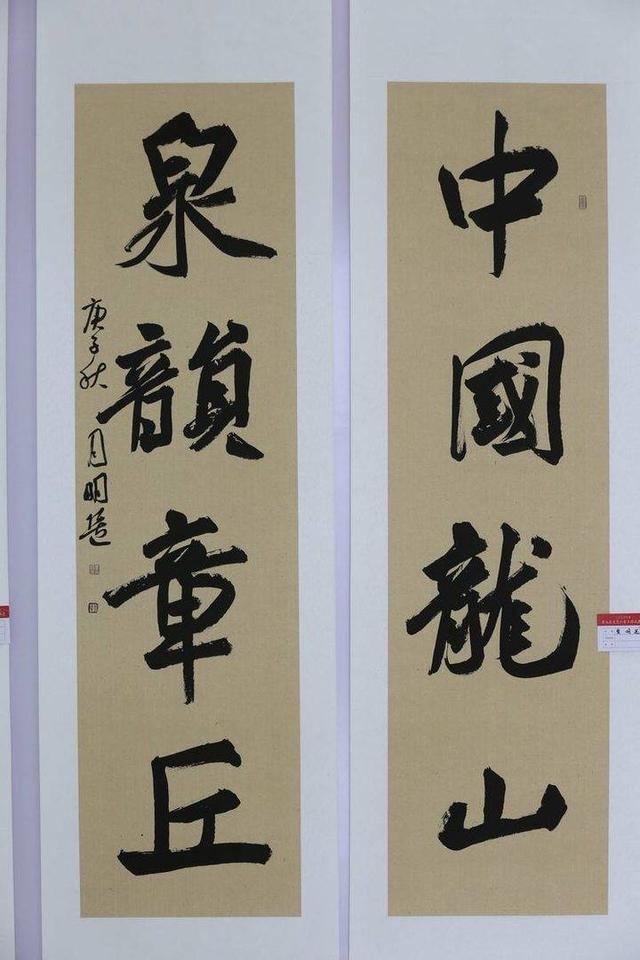 中國龍山
泉韻章丘
庚子秋 月明題